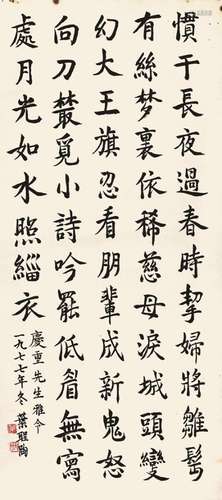 慣于長夜過春時挈婦將雛鬢
有絲夢裏依稀慈母淚城頭變
幻大王旗忍看朋輩成新鬼怒
向刀叢覓小詩吟罷低眉無寫
處月光如水照緇衣
慶重先生雅令
一九七七年冬 葉聖陶